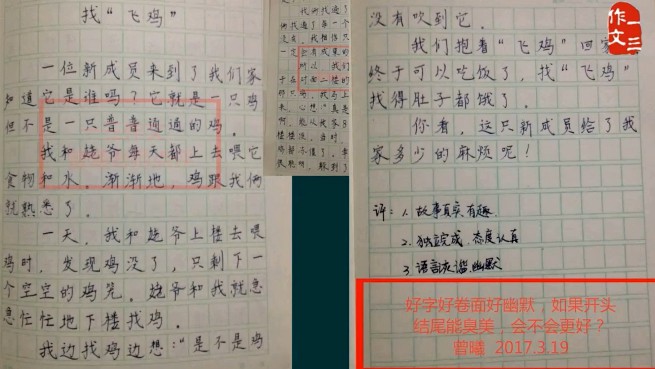 找“飞鸡”
一位新成员来到了我们家
知道它是谁吗?它就是一只鸡
但不是一只普普通通的鸡。
我和姥爷每天都上去喂它
食物和水。渐渐地,鸡跟我俩
就熟悉了。
一天,我和姥爷上楼去喂
鸡时,发现鸡没了,只剩下一
个空空的鸡笼。姥爷和我就急
急忙忙地下楼找鸡。
我边找鸡边想:“是不是鸡
没有吹到它。
我们抱着“飞鸡”回家
终于可以吃饭了,找“飞鸡”
找得肚子都饿了。
你看,这只新成员给了我
家多少的麻烦呢!
评:1.故事真实有趣
2.独立完成,态度认真
3.语言灰谐幽默
好字好卷面好幽默,如果开头
结尾能臭美,会不会更好?
曾曦 2017.3.19
作文
一三